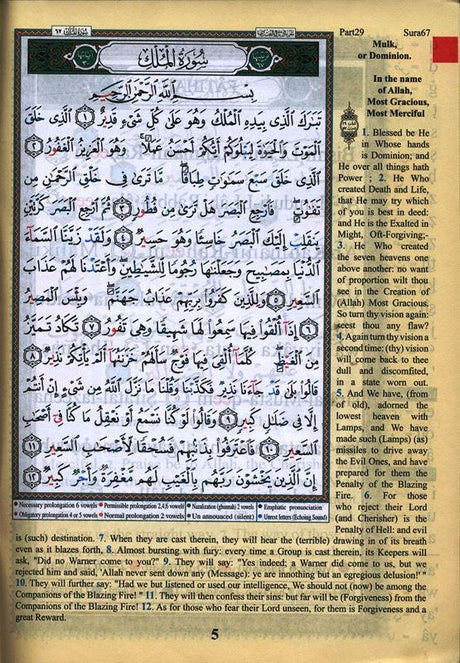 Part29 Sura67
سُورَةُ الْمُلْكِ
بِسْمِ اللَّهِ الرَّحْمَٰنِ الرَّحِيمِ
تَبَٰرَكَ الَّذِى بِيَدِهِ الْمُلْكُ وَهُوَ عَلَىٰ كُلِّ شَىْءٍ قَدِيرٌ ١ الَّذِى خَلَقَ
الْمَوْتَ وَالْحَيَوٰةَ لِيَبْلُوَكُمْ أَيُّكُمْ أَحْسَنُ عَمَلًا ۚ وَهُوَ الْعَزِيزُ الْغَفُورُ ٢
الَّذِى خَلَقَ سَبْعَ سَمَٰوَٰتٍ طِبَاقًا ۖ مَّا تَرَىٰ فِى خَلْقِ الرَّحْمَٰنِ مِن
تَفَٰوُتٍ ۖ فَارْجِعِ الْبَصَرَ هَلْ تَرَىٰ مِن فُطُورٍ ٣ ثُمَّ ارْجِعِ الْبَصَرَ كَرَّتَيْنِ
يَنقَلِبْ إِلَيْكَ الْبَصَرُ خَاسِئًا وَهُوَ حَسِيرٌ ٤ وَلَقَدْ زَيَّنَّا السَّمَآءَ
الدُّنْيَا بِمَصَٰبِيحَ وَجَعَلْنَٰهَا رُجُومًا لِّلشَّيَٰطِينِ ۖ وَأَعْتَدْنَا لَهُمْ عَذَابَ
السَّعِيرِ ٥ وَلِلَّذِينَ كَفَرُوا بِرَبِّهِمْ عَذَابُ جَهَنَّمَ ۖ وَبِئْسَ الْمَصِيرُ
٦ إِذَآ أُلْقُوا فِيهَا سَمِعُوا لَهَا شَهِيقًا وَهِىَ تَفُورُ ٧ تَكَادُ تَمَيَّزُ
مِنَ الْغَيْظِ ۖ كُلَّمَآ أُلْقِىَ فِيهَا فَوْجٌ سَأَلَهُمْ خَزَنَتُهَآ أَلَمْ يَأْتِكُمْ نَذِيرٌ ٨
قَالُوا بَلَىٰ قَدْ جَآءَنَا نَذِيرٌ فَكَذَّبْنَا وَقُلْنَا مَا نَزَّلَ اللَّهُ مِن شَىْءٍ إِنْ أَنتُمْ
إِلَّا فِى ضَلَٰلٍ كَبِيرٍ ٩ وَقَالُوا لَوْ كُنَّا نَسْمَعُ أَوْ نَعْقِلُ مَا كُنَّا فِىٓ أَصْحَٰبِ
السَّعِيرِ ١٠ فَاعْتَرَفُوا بِذَنبِهِمْ فَسُحْقًا لِّأَصْحَٰبِ السَّعِيرِ ١١
إِنَّ الَّذِينَ يَخْشَوْنَ رَبَّهُم بِالْغَيْبِ لَهُم مَّغْفِرَةٌ وَأَجْرٌ كَبِيرٌ ١٢
Necessary prolongation 6 vowels Permissible prolongation 2,4,6 vowels Nazalization (ghunnah) 2 vowels Emphatic pronounciation
Obligatory prolongation 4 or 5 vowels Normal prolongation 2 vowels Un announced (silent) Unrest letters (Echoing Sound)
Mulk,
or Dominion.
In the name
of Allah,
Most Gracious,
Most Merciful
1. Blessed be He
in Whose hands
is Dominion; and
He over all things hath
Power ; 2. He Who
created Death and Life,
that He may try which
of you is best in deed:
and He is the Exalted in
Might, Oft-Forgiving;-
3. He Who created
the seven heavens one
above another: no want
of proportion wilt thou
see in the Creation of
(Allah) Most Gracious.
So turn thy vision again:
seest thou any flaw?
4. Again turn thy vision a
second time: (thy) vision
will come back to thee
dull and discomfited,
in a state worn out.
5. And We have, (from
of old), adorned the
lowest heaven with
Lamps, and We have
made such (Lamps) (as)
missiles to drive away
the Evil Ones, and have
prepared for them the
Penalty of the Blazing
Fire. 6. For those
who reject their Lord
(and Cherisher) is the
Penalty of Hell: and evil
is (such) destination. 7. When they are cast therein, they will hear the (terrible) drawing in of its breath
even as it blazes forth, 8. Almost bursting with fury: every time a Group is cast therein, its Keepers will
ask, "Did no Warner come to you?" 9. They will say: "Yes indeed; a Warner did come to us, but we
rejected him and said, 'Allah never sent down any (Message): ye are in nothing but an egregious delusion!' "
10. They will further say: "Had we but listened or used our intelligence, We should not (now) be among the
Companions of the Blazing Fire! " 11. They will then confess their sins: but far will be (Forgiveness) from the
Companions of the Blazing Fire! 12. As for those who fear their Lord unseen, for them is Forgiveness and a
great Reward.
5